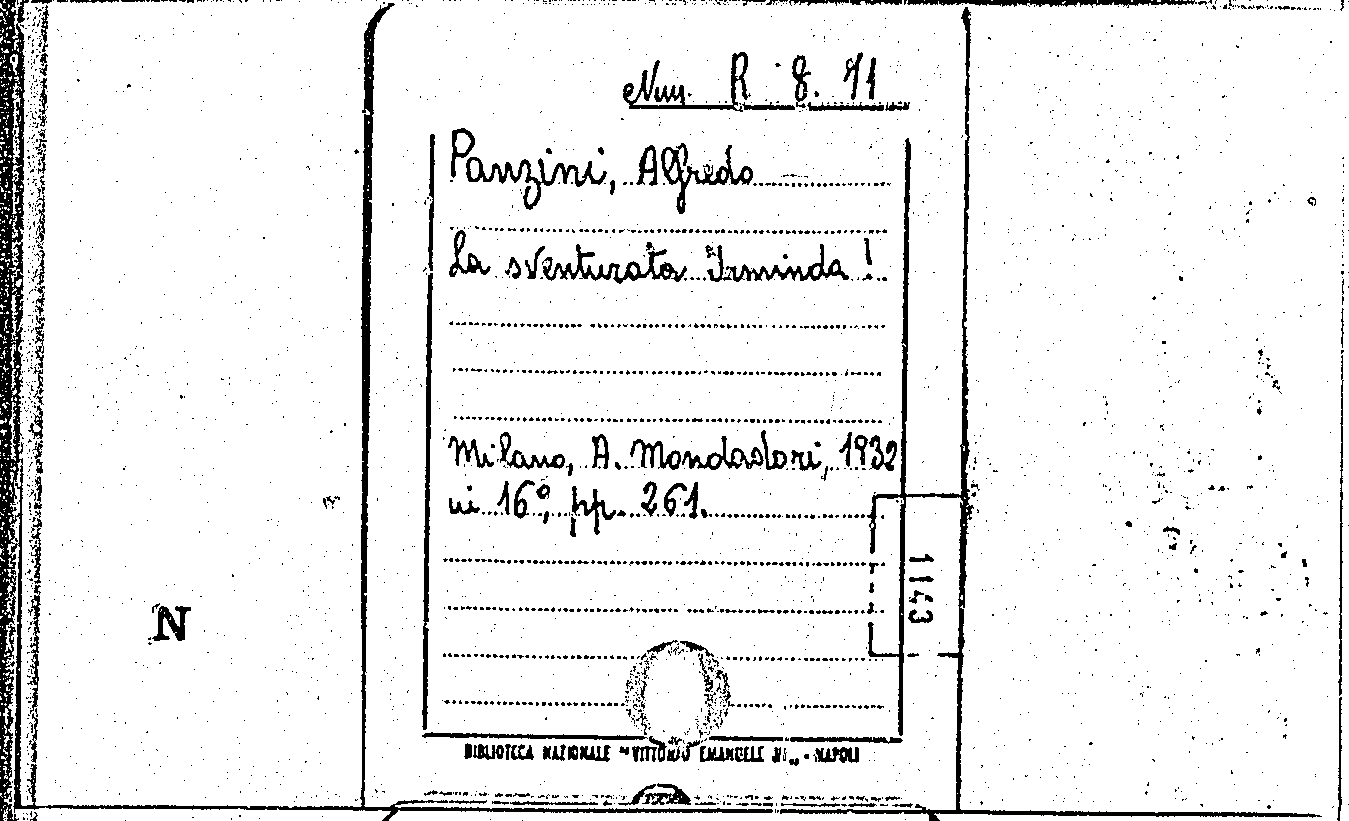 Nuu. R 8. 71
Panzini, Alfredo
La sventurata Irminda !
Milano, A. Mondadori, 1932
in 16°, pp. 261.
1143
N
BIBLIOTECA NAZIONALE "VITTORIO EMANUELE III„ - NAPOLI